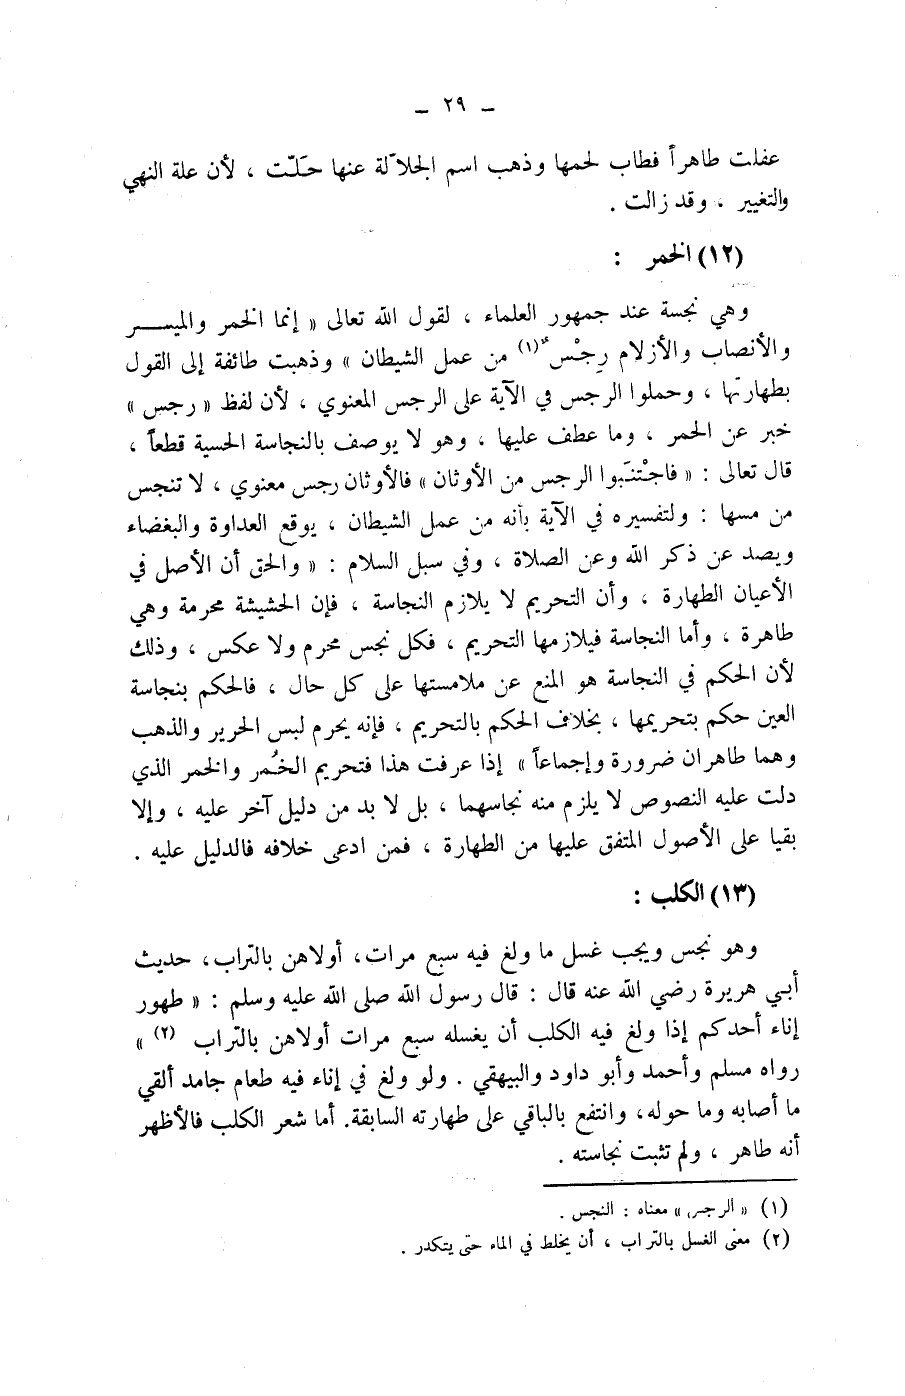 ــ ٢٩ ــ
عفلت طاهراً فطاب لحمها وذهب اسم الجلاّلة عنها حلّت ، لأن علة النهي
والتغيير ، وقد زالت .
(١٢) الخمر :
وهي نجسة عند جمهور العلماء ، لقول الله تعالى « إنما الخمر والميســر
والأنصاب والأزلام رِجْسٌ (١) من عمل الشيطان » وذهبت طائفة إلى القول
بطهارتها ، وحملوا الرجس في الآية على الرجس المعنوي ، لأن لفظ « رجس »
خبر عن الخمر ، وما عطف عليها ، وهو لا يوصف بالنجاسة الحسية قطعاً ،
قال تعالى : « فاجْتنَبوا الرجس من الأوثان » فالأوثان رجس معنوي ، لا تنجس
من مسها : ولتفسيره في الآية بأنه من عمل الشيطان ، يوقع العداوة والبغضاء
ويصد عن ذكر الله وعن الصلاة ، وفي سبل السلام : « والحق أن الأصل في
الأعيان الطهارة ، وأن التحريم لا يلازم النجاسة ، فإن الحشيشة محرمة وهي
طاهرة ، وأما النجاسة فيلازمها التحريم ، فكل نجس محرم ولا عكس ، وذلك
لأن الحكم في النجاسة هو المنع عن ملامستها على كل حال ، فالحكم بنجاسة
العين حكم بتحريمها ، بخلاف الحكم بالتحريم ، فإنه يحرم لبس الحرير والذهب
وهما طاهران ضرورة وإجماعاً » إذا عرفت هذا فتحريم الخُمر والخمر الذي
دلت عليه النصوص لا يلزم منه نجاسهما ، بل لا بد من دليل آخر عليه ، وإلا
بقيا على الأصول المتفق عليها من الطهارة ، فمن ادعى خلافه فالدليل عليه .
(١٣) الكلب :
وهو نجس ويجب غسل ما ولغ فيه سبع مرات، أولاهن بالتراب، حديث
أبي هريرة رضي الله عنه قال : قال رسول الله صلى الله عليه وسلم : « طهور
إناء أحدكم إذا ولغ فيه الكلب أن يغسله سبع مرات أولاهن بالتراب (٢) »
رواه مسلم وأحمد وأبو داود والبيهقي . ولو ولغ في إناء فيه طعام جامد ألقي
ما أصابه وما حوله، وانتفع بالباقي على طهارته السابقة. أما شعر الكلب فالأظهر
أنه طاهر ، ولم تثبت نجاسته .
(١) « الرجس » معناه : النجس .
(٢) معنى الغسل بالتراب ، أن يخلط في الماء حتى يتكدر .